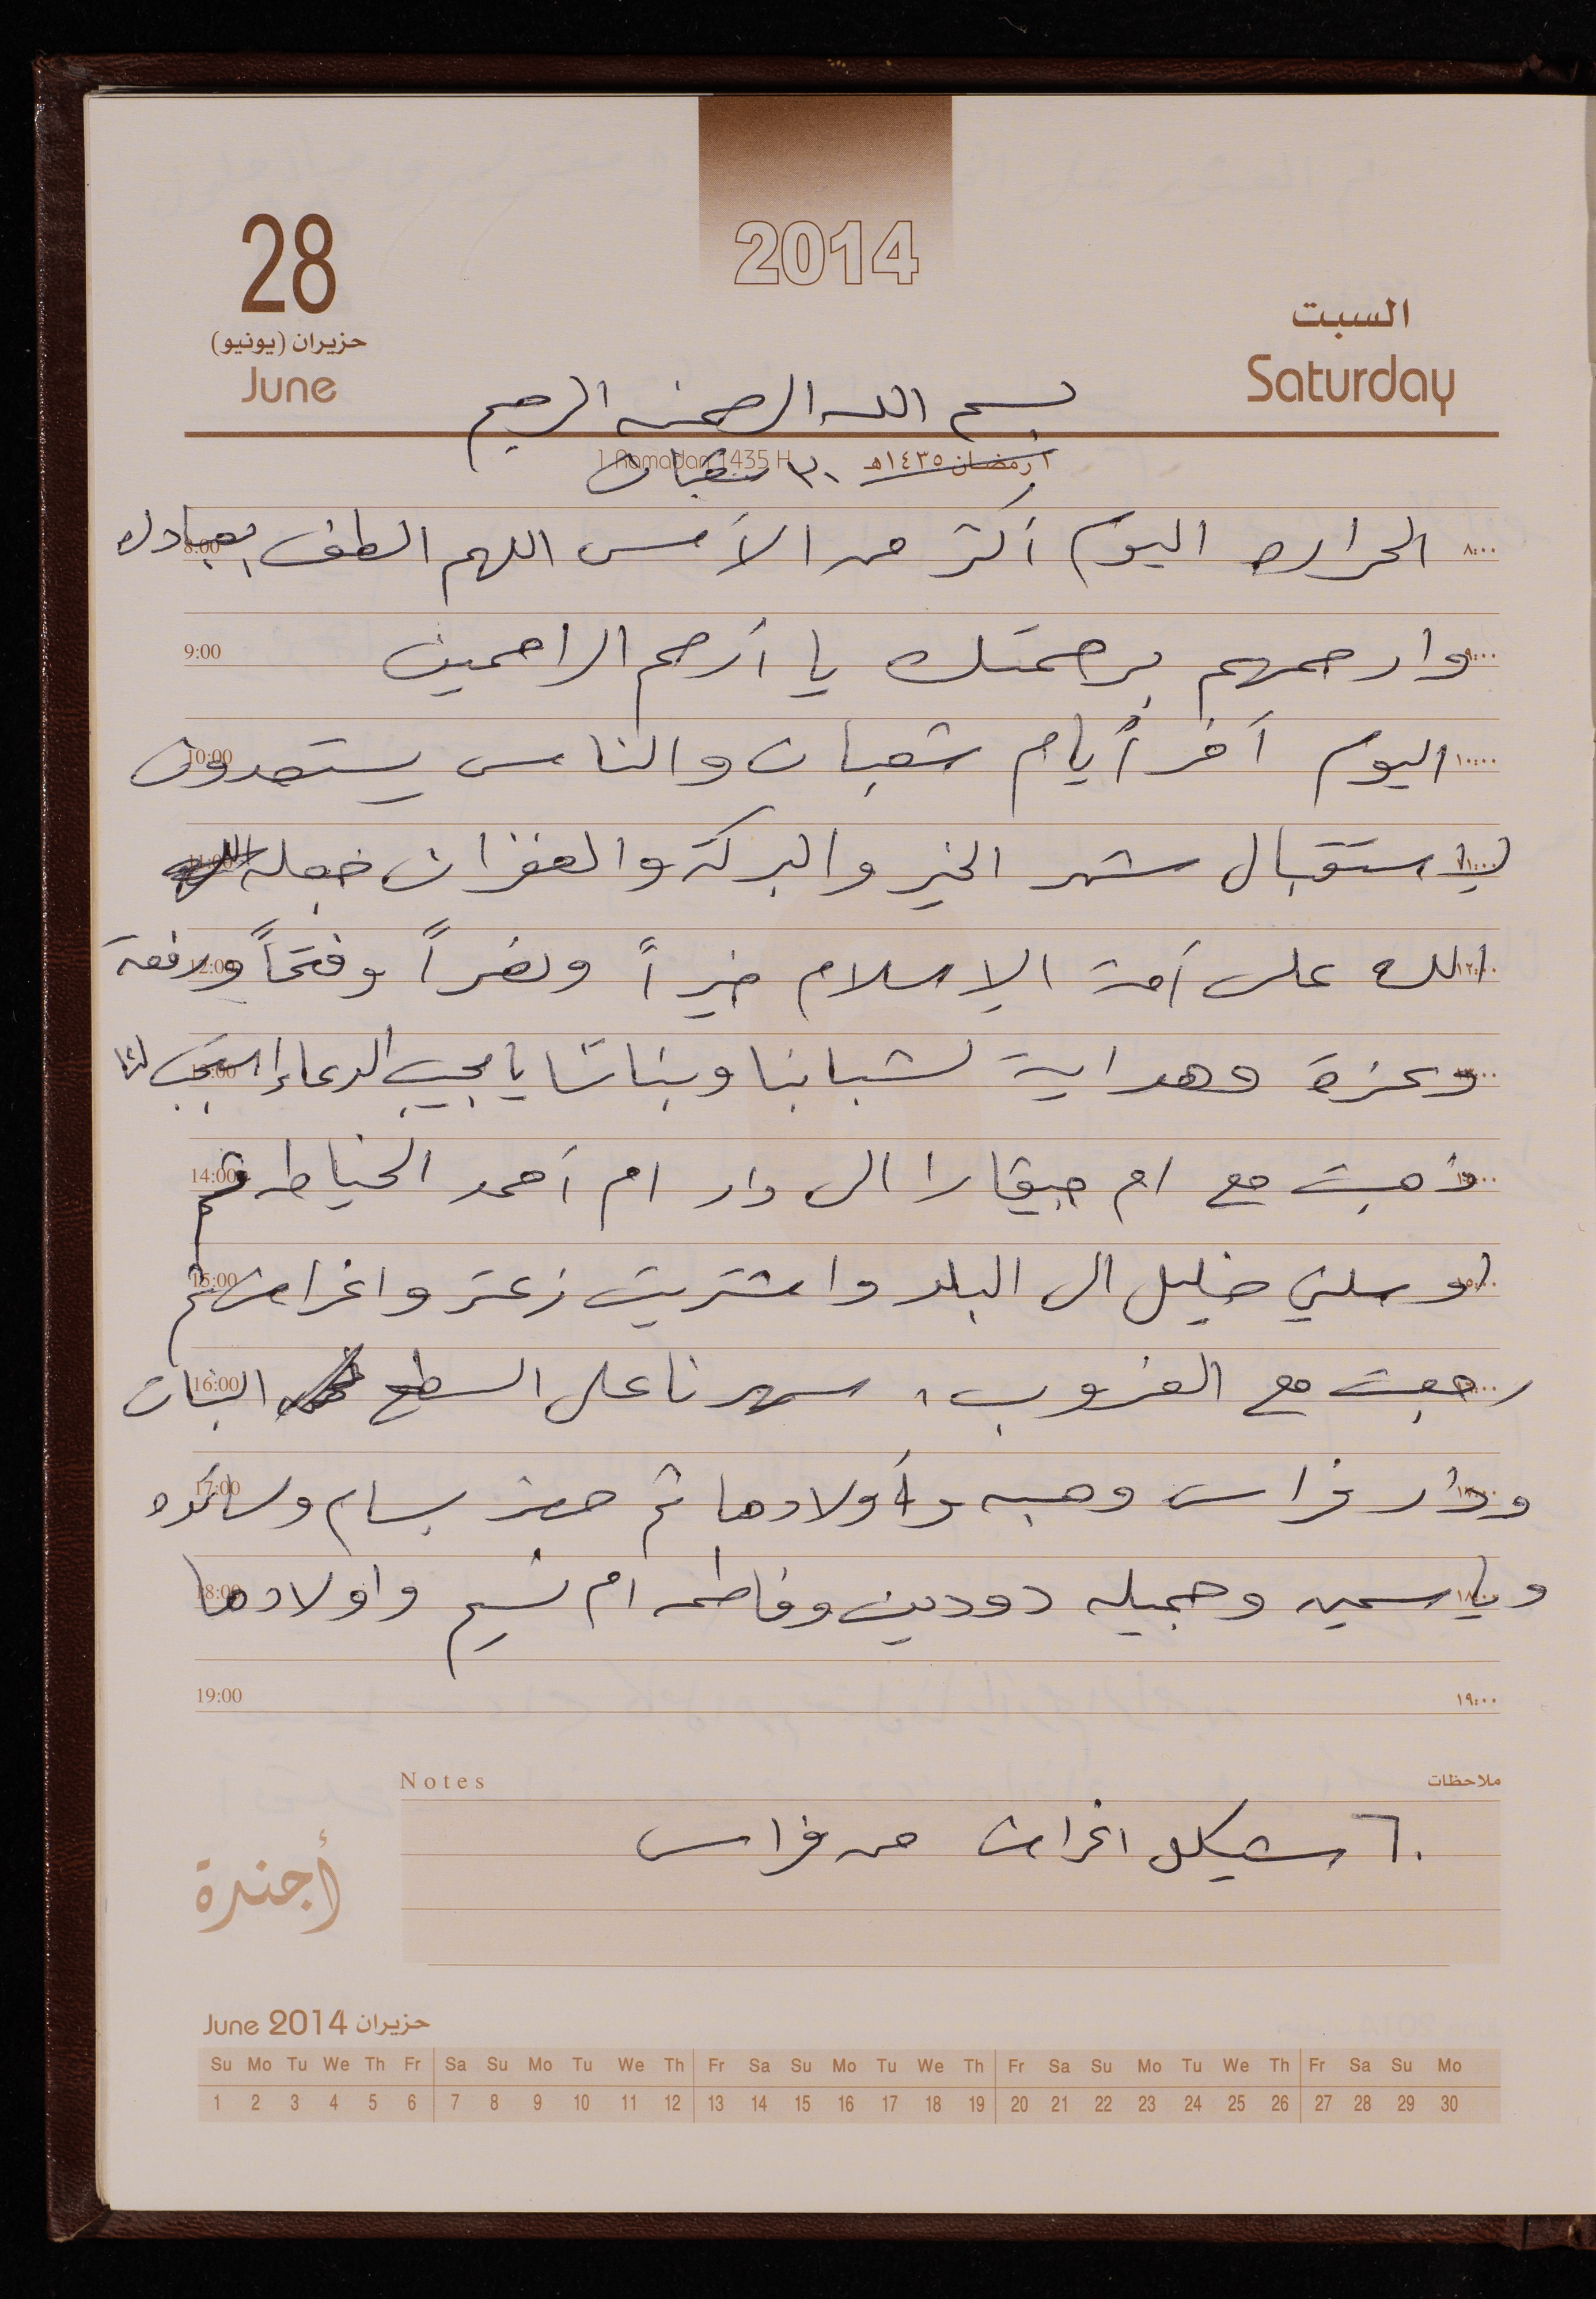 28
حزيران (يونيو)
June
2014
السبت
Saturday
بسم الله الرحمن الرحيم
١ رمضان ١٤٣٥هـ 1 Ramadan 1435 H
٣٠ شعبان
٨:٠٠ الحراره اليوم أكثر من الأمس اللهم الطف بعبادك 8:00
٩:٠٠ وارحمهم برحمتك يا أرحم الراحمين 9:00
١٠:٠٠ اليوم آخر أيام شعبان والناس يستعدون 10:00
١١:٠٠ لإستقبال شهر الخير والبركة والغفران جعله 11:00
١٢:٠٠ الله على أمة الإسلام خيراً ونصراً وفتحاً ورفعة 12:00
١٣:٠٠ وعزة وهداية لشبابنا وبناتنا يا مجيب الدعاء إستجب لنا 13:00
١٤:٠٠ ذهبت مع ام جيفارا الى دار ام أحمد الخياطه ثم 14:00
١٥:٠٠ اوصلني خليل الى البلد واشتريت زعتر واغراض ثم 15:00
١٦:٠٠ رجعت مع الغروب، سهرنا على السطح البنات 16:00
١٧:٠٠ ودار فراس وهبه وأولادها ثم حضر بسام وسائده 17:00
١٨:٠٠ وياسمين وجميله دودين وفاطمه ام نسيم واولادها 18:00
١٩:٠٠ 19:00
Notes ملاحظات
٦٠ شيكل اغراض من فراس
أجندة
June 2014 حزيران
Su Mo Tu We Th Fr Sa Su Mo Tu We Th Fr Sa Su Mo Tu We Th Fr Sa Su Mo Tu We Th Fr Sa Su Mo
1 2 3 4 5 6 7 8 9 10 11 12 13 14 15 16 17 18 19 20 21 22 23 24 25 26 27 28 29 30